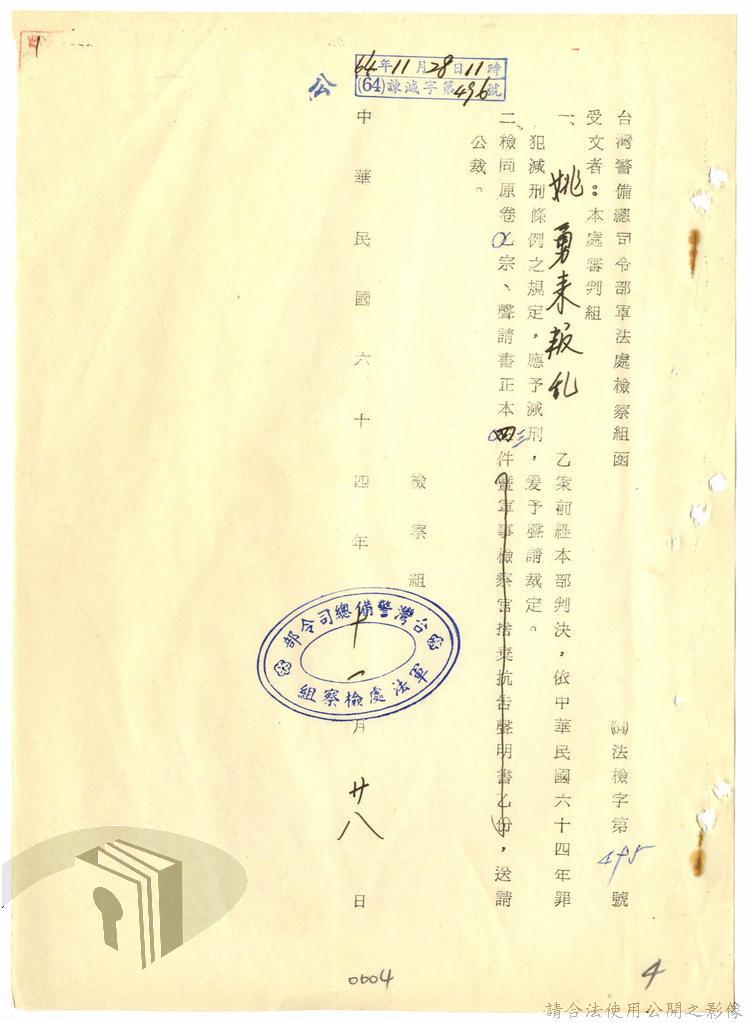 64年11月28日11時
(64)諫減字第496號
公
台灣警備總司令部軍法處檢察組函
(64)法檢字第495號
受文者：本處審判組
一、姚勇来叛乱乙案前經本部判決，依中華民國六十四年罪
犯減刑條例之規定，應予減刑，爰予聲請裁定。
二、檢同原卷乙宗、聲請書正本四三件暨軍事檢察官捨棄抗告聲明書乙份，送請
公裁。
檢察組
中華民國六十四年十一月廿八日
台灣警備總司令部
軍法處檢察組
0004
4
請合法使用公開之影像